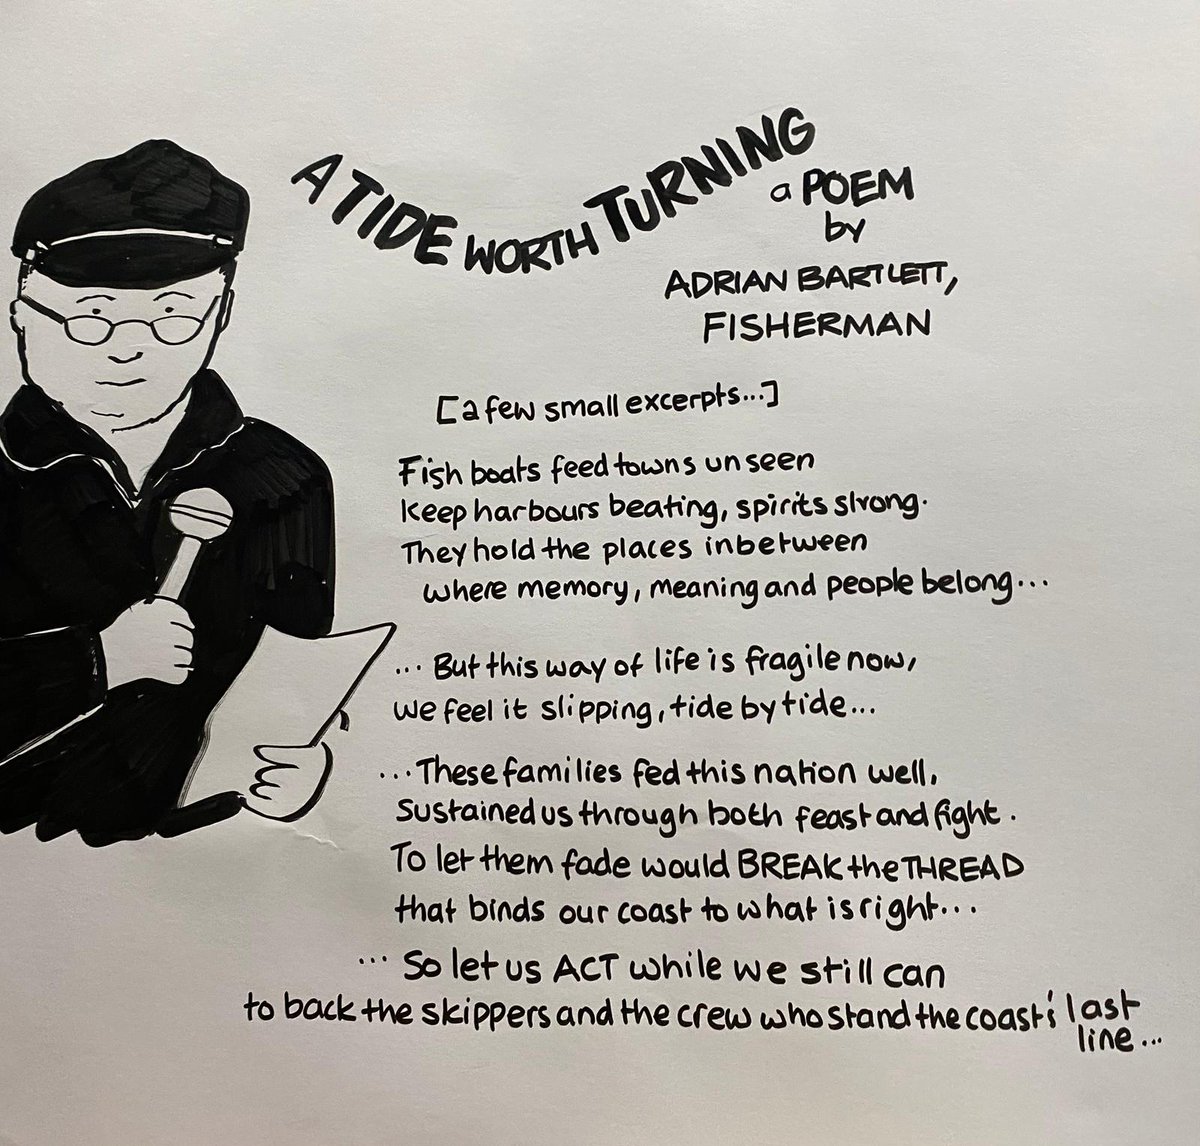 A TIDE WORTH TURNING
a POEM
by
ADRIAN BARTLETT,
FISHERMAN
[a few small excerpts...]
Fish boats feed towns unseen
Keep harbours beating, spirits strong.
They hold the places inbetween
where memory, meaning and people belong...
... But this way of life is fragile now,
we feel it slipping, tide by tide...
...These families fed this nation well,
Sustained us through both feast and fight.
To let them fade would BREAK the THREAD
that binds our coast to what is right...
... So let us ACT while we still can
to back the skippers and the crew who stand the coasts' last
line...